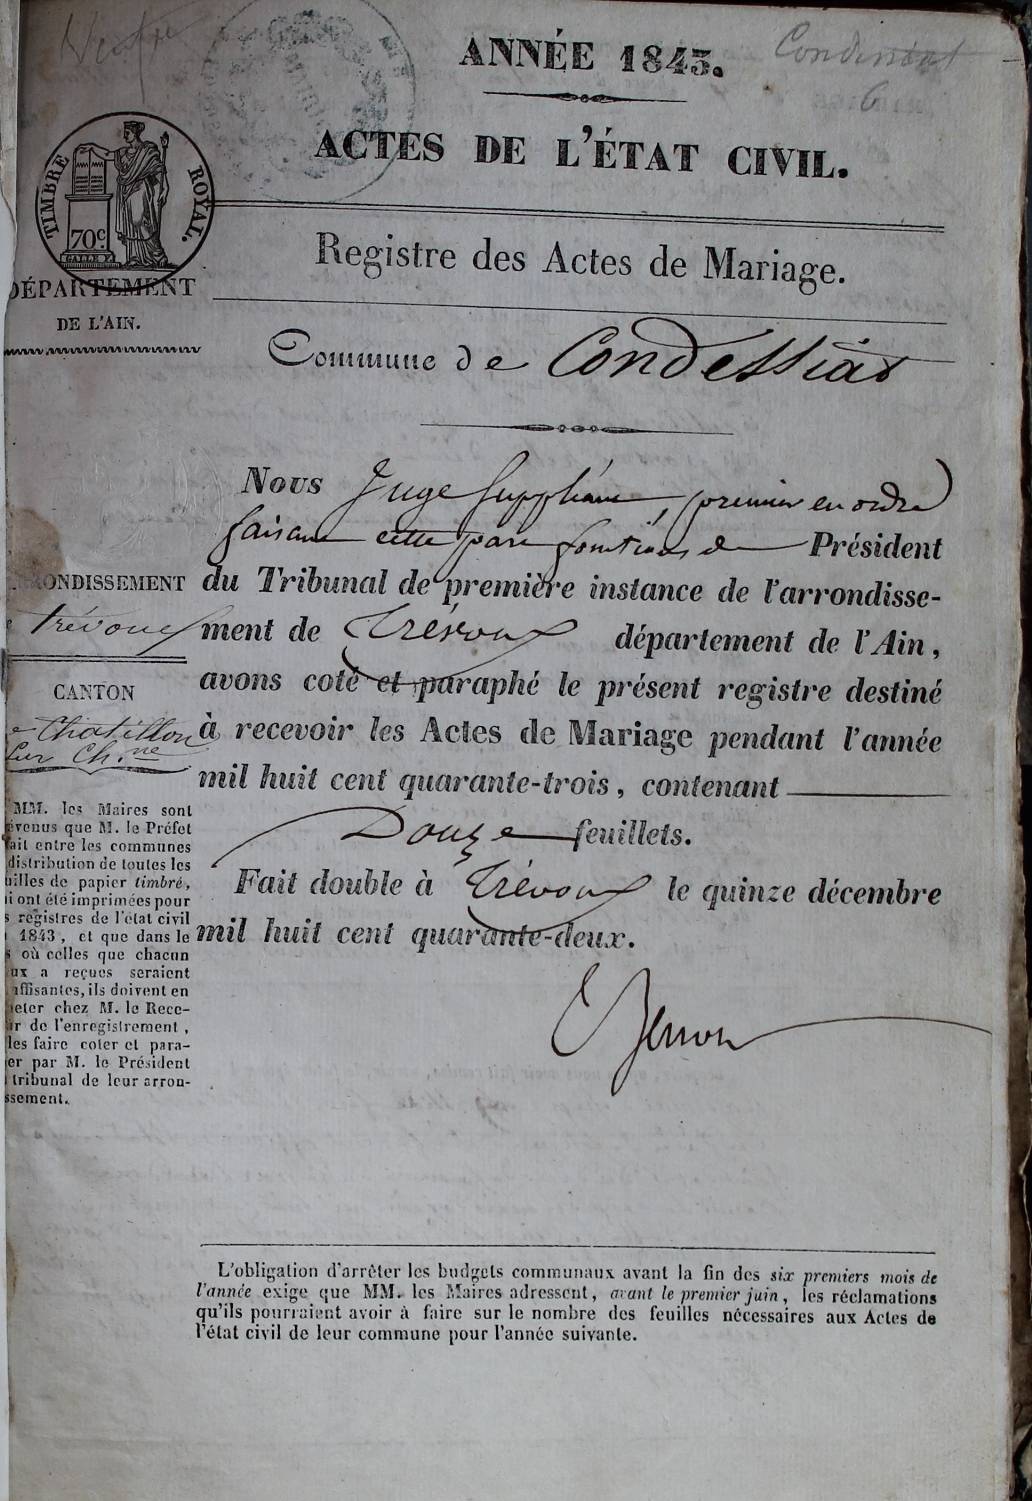 ANNÉE 1843.
Condessiat
6
ACTES DE L'ÉTAT CIVIL.
TIMBRE ROYAL.
70c
Registre des Actes de Mariage.
DÉPARTEMENT
DE L'AIN.
Commune de Condessiat
Nous Juge Suppléant, premier en ordre
faisant cette part fonctions de Président
du Tribunal de première instance de l'arrondisse-
ment de Trévoux département de l'Ain,
avons coté et paraphé le présent registre destiné
à recevoir les Actes de Mariage pendant l'année
mil huit cent quarante-trois, contenant
Douze feuillets.
Fait double à Trévoux le quinze décembre
mil huit cent quarante-deux.
RONDISSEMENT
Trévoux
CANTON
e Chatillon
sur Ch.ne
MM. les Maires sont
évenus que M. le Préfet
fait entre les communes
distribution de toutes les
uilles de papier timbré,
i ont été imprimées pour
s registres de l'état civil
1843, et que dans le
s où celles que chacun
ux a reçues seraient
uffisantes, ils doivent en
heter chez M. le Rece-
ur de l'enregistrement,
les faire coter et para-
er par M. le Président
tribunal de leur arron-
ssement.
L'obligation d'arrêter les budgets communaux avant la fin des six premiers mois de
l'année exige que MM. les Maires adressent, avant le premier juin, les réclamations
qu'ils pourraient avoir à faire sur le nombre des feuilles nécessaires aux Actes de
l'état civil de leur commune pour l'année suivante.